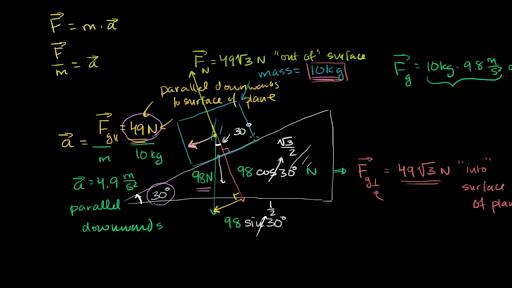 F = m · a
F/m = a
F_N = 49√3 N "out of" surface
mass = 10kg
F_g = 10kg · 9.8 m/s²
parallel downwards
to surface of plane
a = F_g∥ = 49N
m 10kg
30°
√3/2
a = 4.9 m/s²
98N 98 cos 30° N ⇒ F_g⊥ = 49√3 N "into"
surface
of plane
parallel
downwards
30°
1/2
98 sin 30°